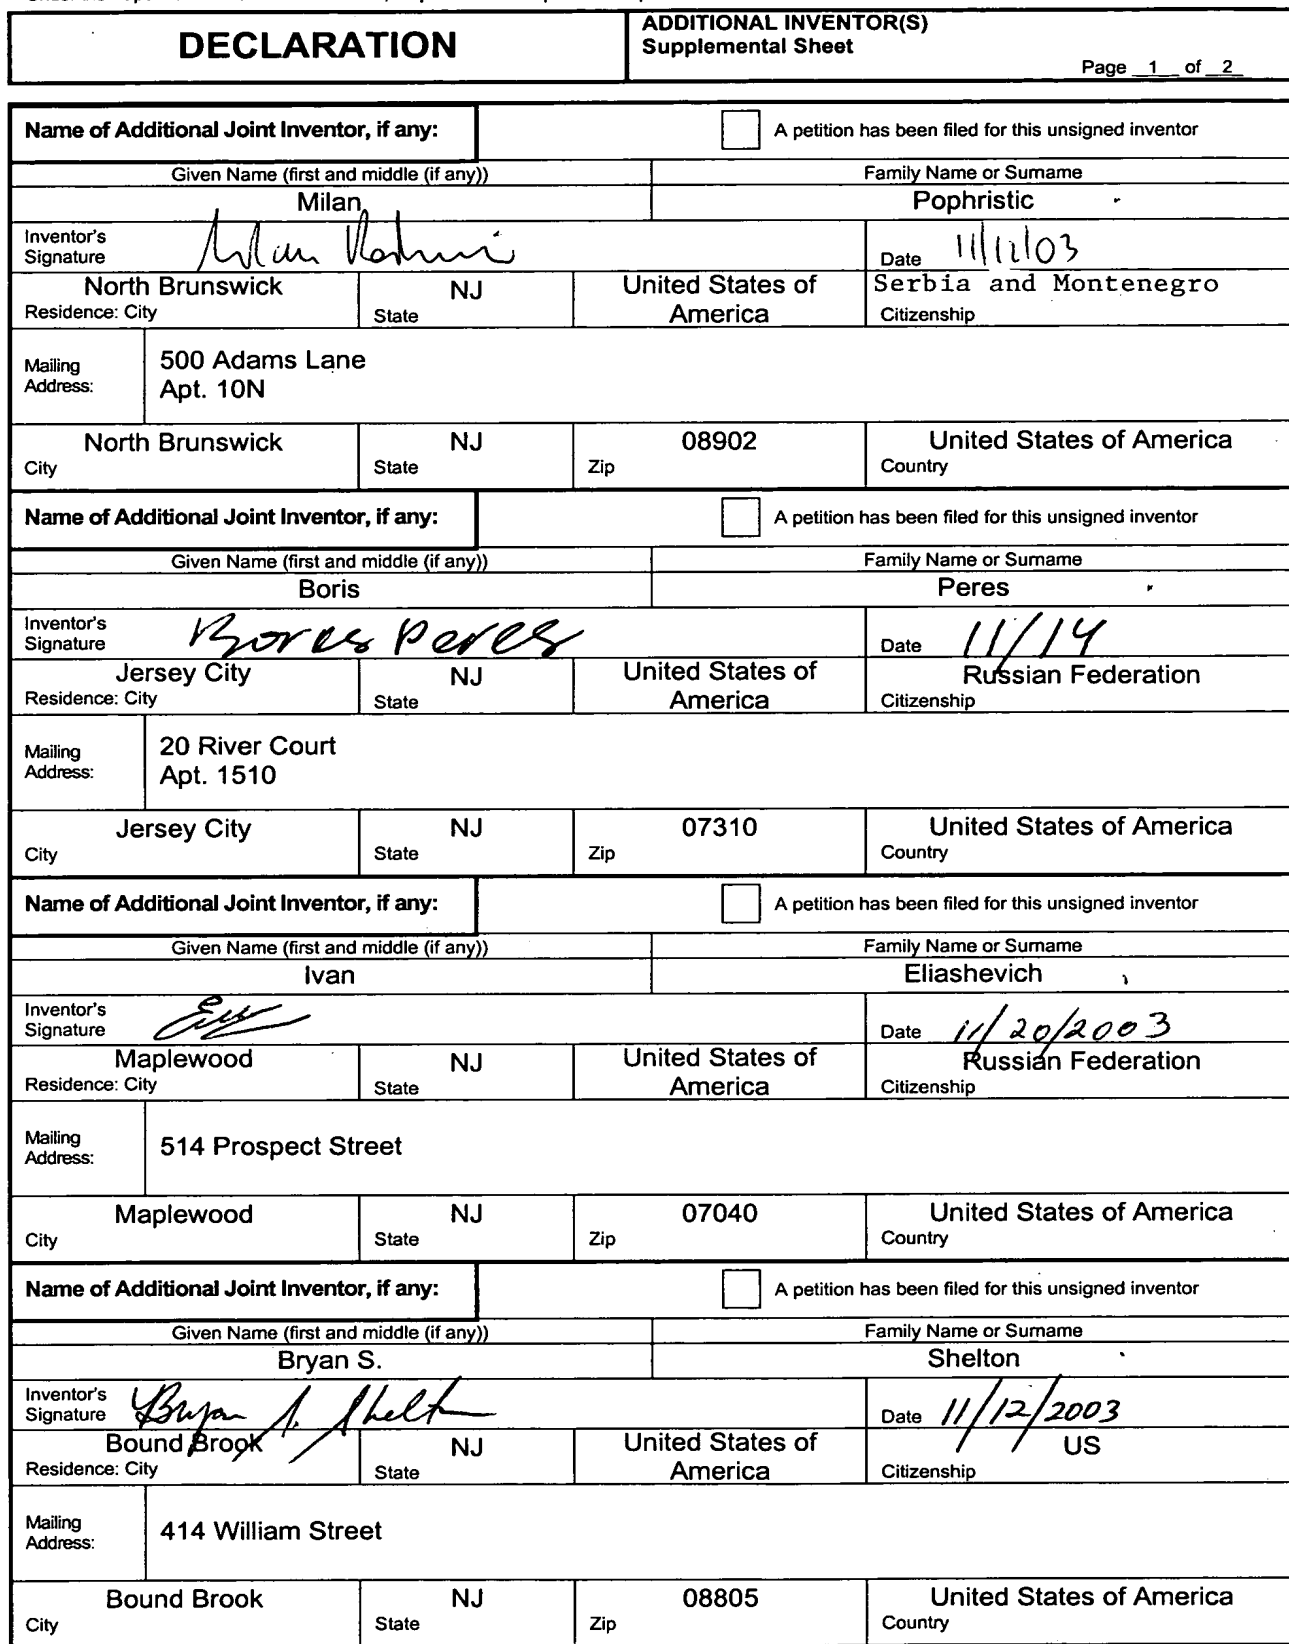 DECLARATION
ADDITIONAL INVENTOR(S)
Supplemental Sheet
Page 1 of 2
Name of Additional Joint Inventor, if any:
A petition has been filed for this unsigned inventor
Given Name (first and middle (if any))
Family Name or Surname
Milan
Pophristic
Inventor's
Signature
Date 11/12/03
North Brunswick
Residence: City
NJ
State
United States of
America
Serbia and Montenegro
Citizenship
Mailing
Address:
500 Adams Lane
Apt. 10N
North Brunswick
City
NJ
State
08902
Zip
United States of America
Country
Name of Additional Joint Inventor, if any:
A petition has been filed for this unsigned inventor
Given Name (first and middle (if any))
Family Name or Surname
Boris
Peres
Inventor's
Signature
Boris Peres
Date 11/14
Jersey City
Residence: City
NJ
State
United States of
America
Russian Federation
Citizenship
Mailing
Address:
20 River Court
Apt. 1510
Jersey City
City
NJ
State
07310
Zip
United States of America
Country
Name of Additional Joint Inventor, if any:
A petition has been filed for this unsigned inventor
Given Name (first and middle (if any))
Family Name or Surname
Ivan
Eliashevich
Inventor's
Signature
Date 11/20/2003
Maplewood
Residence: City
NJ
State
United States of
America
Russian Federation
Citizenship
Mailing
Address:
514 Prospect Street
Maplewood
City
NJ
State
07040
Zip
United States of America
Country
Name of Additional Joint Inventor, if any:
A petition has been filed for this unsigned inventor
Given Name (first and middle (if any))
Family Name or Surname
Bryan S.
Shelton
Inventor's
Signature
Bryan S. Shelton
Date 11/12/2003
Bound Brook
Residence: City
NJ
State
United States of
America
US
Citizenship
Mailing
Address:
414 William Street
Bound Brook
City
NJ
State
08805
Zip
United States of America
Country